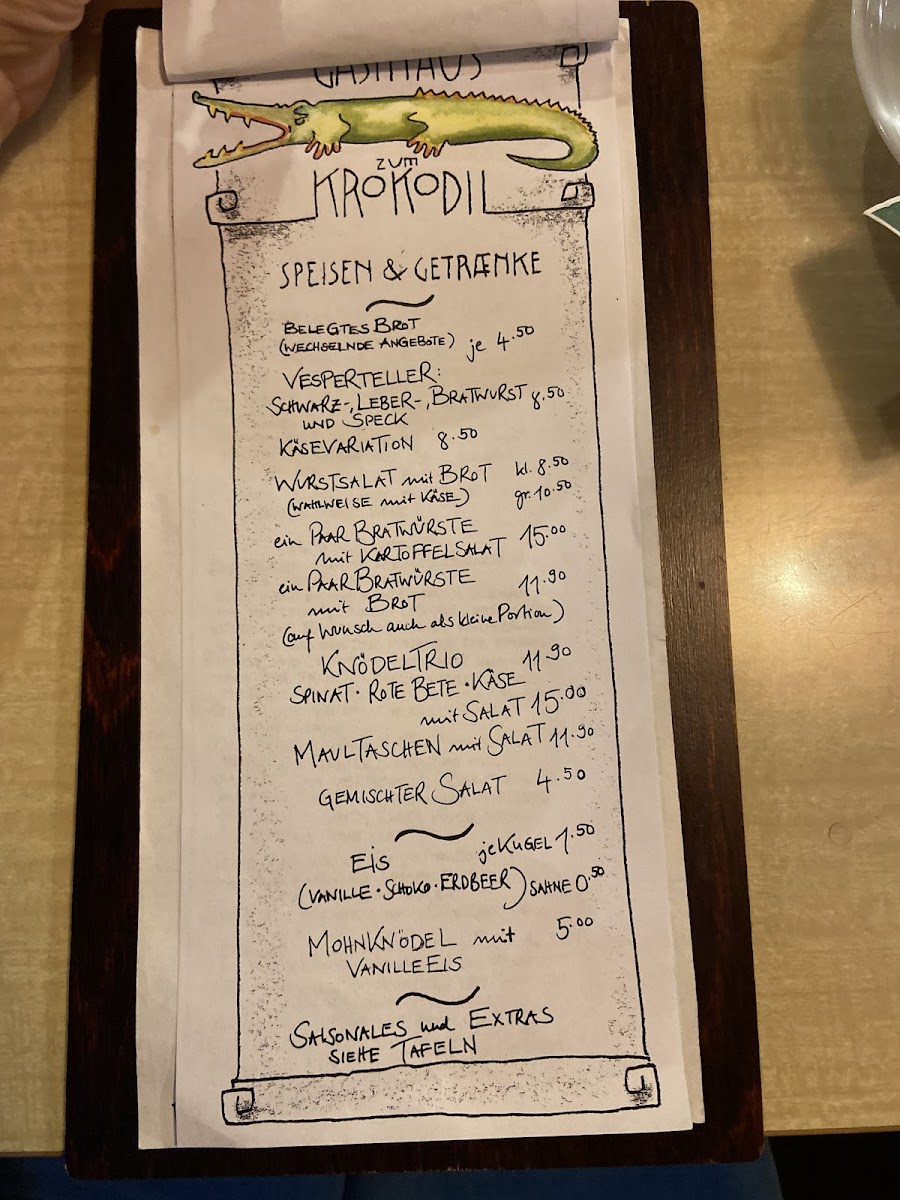 GASTHAUS
ZUM
KROKODIL
SPEISEN & GETRÆNKE
BELEGTES BROT
(WECHSELNDE ANGEBOTE) je 4.50
VESPERTELLER:
SCHWARZ-, LEBER-, BRATWURST 8.50
UND SPECK
KÄSEVARIATION 8.50
WURSTSALAT mit BROT kl. 8.50
(WAHLWEISE mit KÄSE) gr. 10.50
ein PAAR BRATWÜRSTE
mit KARTOFFELSALAT 15.00
ein PAAR BRATWÜRSTE 11.90
mit BROT
(auf Wunsch auch als kleine Portion)
KNÖDELTRIO 11.90
SPINAT · ROTE BETE · KÄSE
mit SALAT 15.00
MAULTASCHEN mit SALAT 11.90
GEMISCHTER SALAT 4.50
EIS je KUGEL 1.50
(VANILLE · SCHOKO · ERDBEER) SAHNE 0.50
MOHNKNÖDEL mit 5.00
VANILLEEIS
SAISONALES und EXTRAS
SIEHE TAFELN